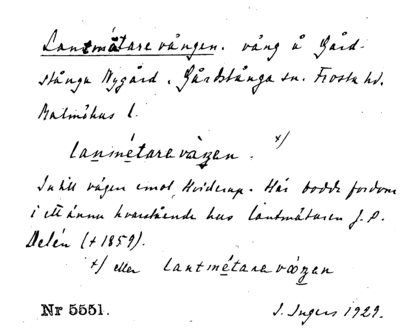 Lantmätarevången. vång å Gård-
stånga Nygård, Gårdstånga sn. Frosta hd.
Malmöhus l.
lanmétarevàŋen. x/
Intill vägen emot Hviderup. Här bodde fordom
i ett ännu kvarstående hus lantmätaren J. P.
Delén (+ 1859).
x/ eller lantmétarevòŋen
Nr 5551. I. Ingers 1929.